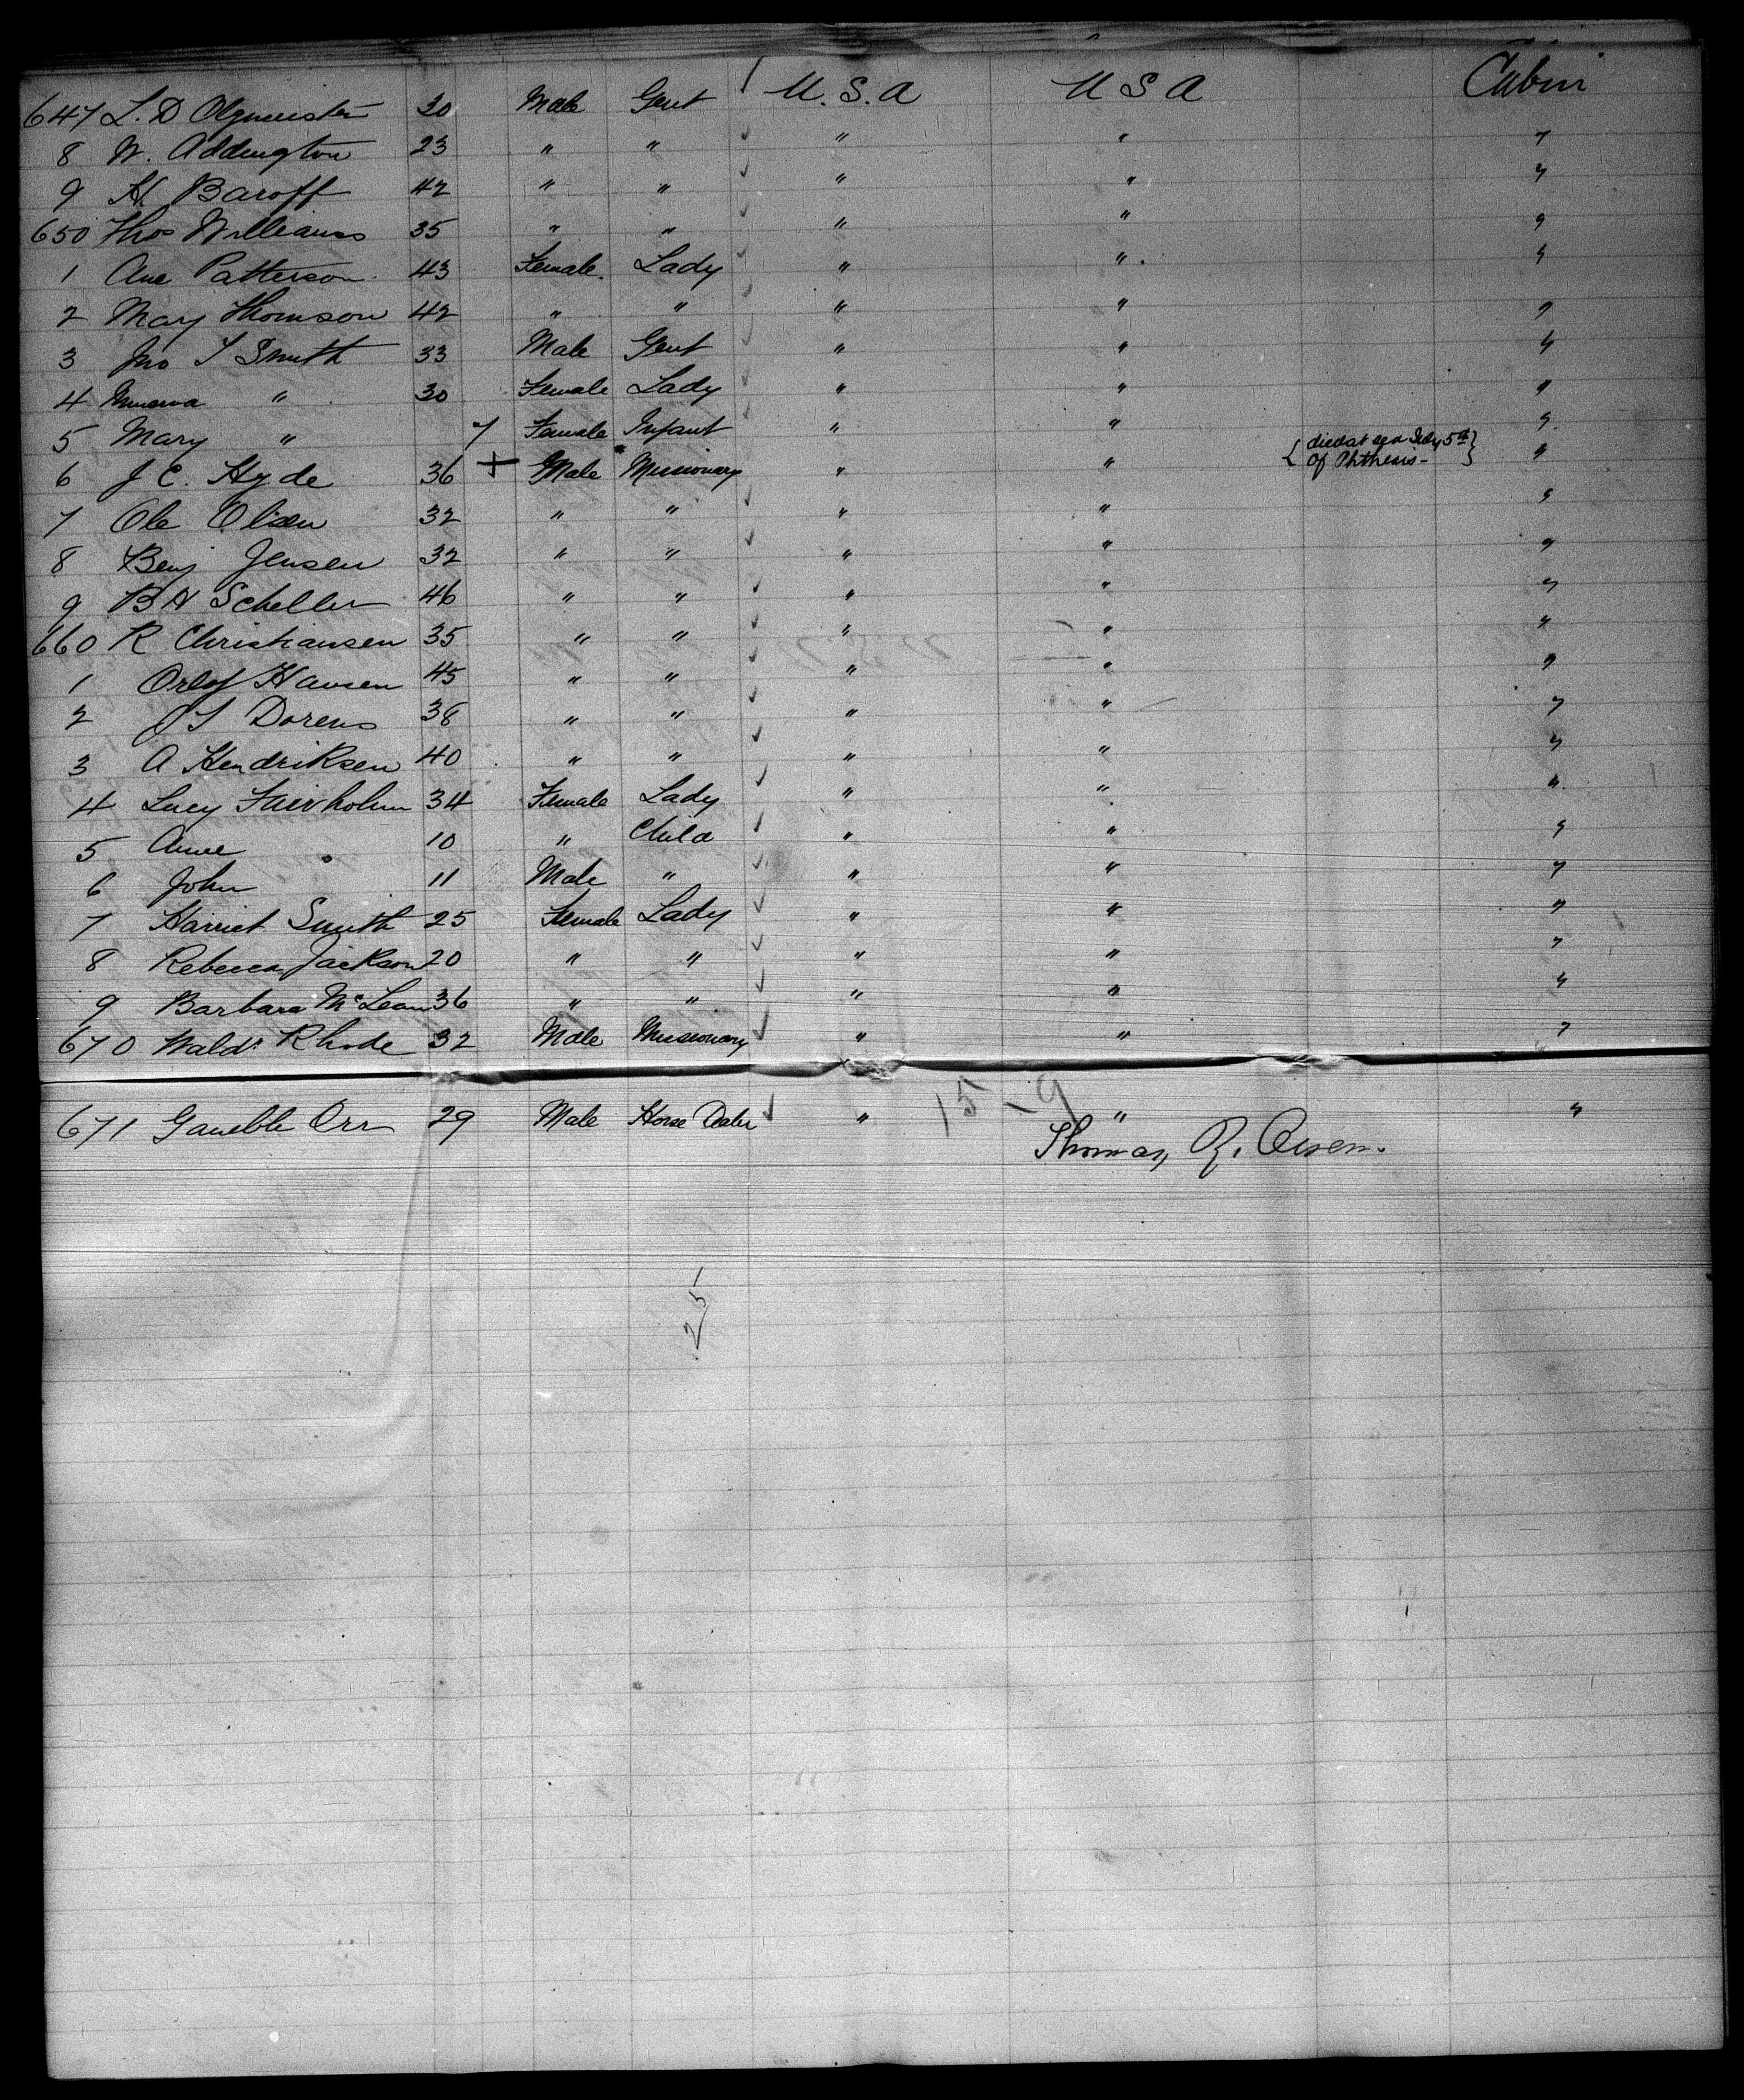 647 L. D 30 Male Gent U.S.A U S A Cabin
8 W. Addington 23 " " " " "
9 H. Baroff 42 " " " " "
650 Thos Williams 35 " " " " "
1 Ane Patterson 43 Female Lady " " "
2 Mary Thomson 42 " " " " "
3 Jno S Smith 33 Male Gent " " "
4 Minerva " 30 Female Lady " " "
5 Mary " 7 Female Infant " " "
6 J C. Hyde 36 + Male Missionary " " { died at sea July 5th of Phthesis - } "
7 Ole Olsen 32 " " " " "
8 Benj Jensen 32 " " " " "
9 B H Scheller 46 " " " " "
660 R Christiansen 35 " " " " "
1 Hansen 45 " " " " "
2 Dorens 38 " " " " "
3 A Hendriksen 40 " " " " "
4 Lucy Fairholm 34 Female Lady " " "
5 Anne 10 " Child " " "
6 John 11 Male " " " "
7 Harriet Smith 25 Female Lady " " "
8 Rebecca Jackson 20 " " " " "
9 Barbara McLean 36 " " " " "
670 Wald. Rhode 32 Male Missionary " " "
15-9
671 Orr 29 Male Horse Dealer " " "
Thomas
25